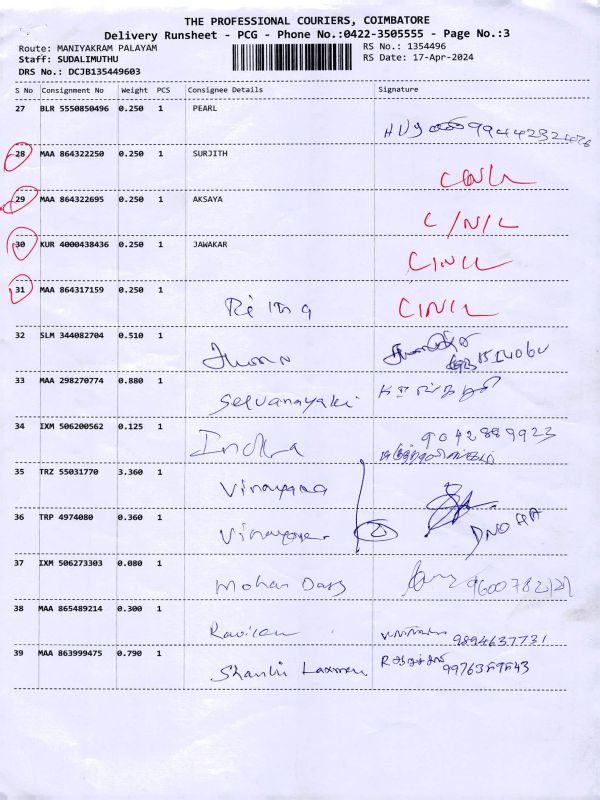 THE PROFESSIONAL COURIERS, COIMBATORE
Delivery Runsheet - PCG - Phone No.:0422-3505555 - Page No.:3
Route: MANIYAKRAM PALAYAM RS No.: 1354496
Staff: SUDALIMUTHU RS Date: 17-Apr-2024
DRS No.: DCJB135449603
S No Consignment No Weight PCS Consignee Details Signature
27 BLR 5550850496 0.250 1 PEARL
28 MAA 864322250 0.250 1 SURJITH
29 MAA 864322695 0.250 1 AKSAYA C/N/L
30 KUR 4000438436 0.250 1 JAWAKAR
31 MAA 864317159 0.250 1
32 SLM 344082704 0.510 1
33 MAA 298270774 0.880 1 Selvanayaki
34 IXM 506200562 0.125 1 Indhra 9042889923
35 TRZ 55031770 3.360 1 Vinayaga
36 TRP 4974080 0.360 1 2
37 IXM 506273303 0.080 1 Mohan Dass
38 MAA 865489214 0.300 1 9894637731
39 MAA 863999475 0.790 1 Shanthi Laxman